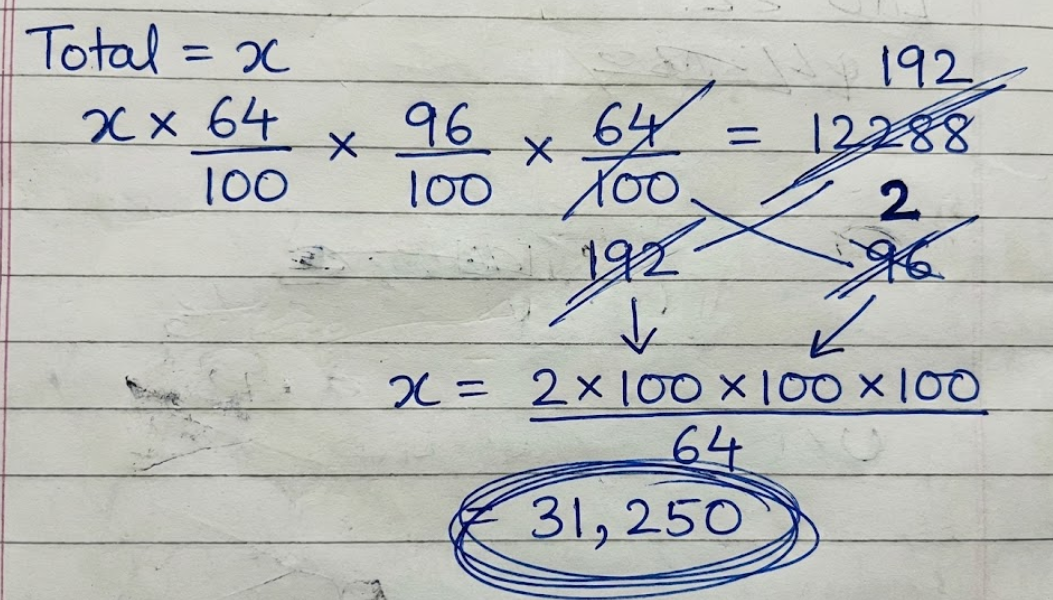 Total = x
192
x × 64/100 × 96/100 × 64/100 = 12288
2
192 96
x = 2 × 100 × 100 × 100 / 64
= 31,250